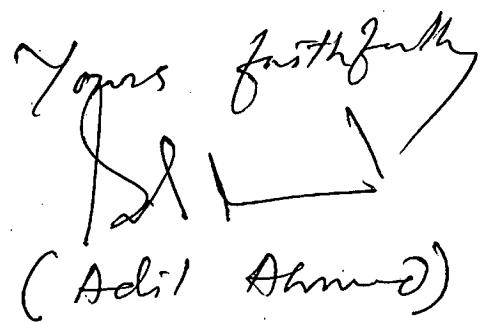 Yours faithfully
(Adil Ahmed)